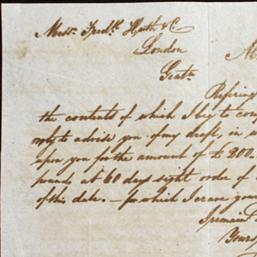 Messrs. Fredk. Huth & Co.
London
Gentn.
Refering
the contents of which I beg to con
only to advise you of my draft, in
upon you for the amount of £ 200.
pounds at 60 days sight order of
of this date. - for which I crave your
I remain
Yours